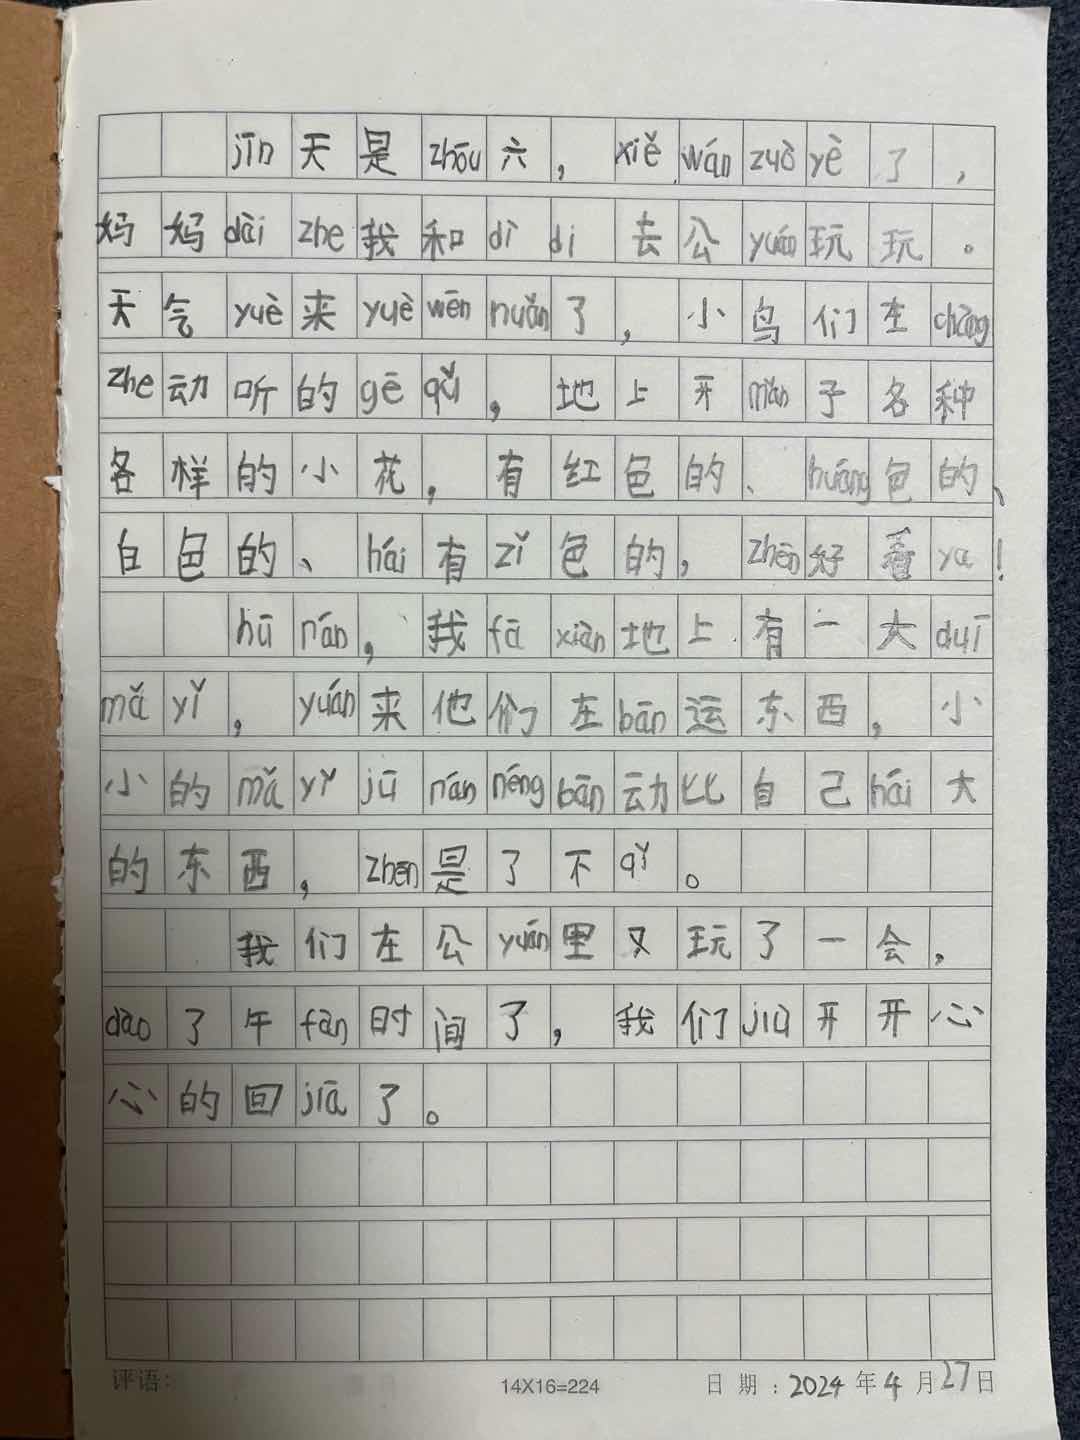 jīn天是zhōu六，xiě wán zuò yè了，
妈妈dài zhe我和dì di去公yuán玩玩。
天气yuè来yuè wēn nuǎn了，小鸟们在chàng
zhe动听的gē qǔ，地上开mǎn子各种
各样的小花，有红色的、huáng色的、
白色的、hái有zǐ色的，zhēn好看ya！
hū rán，我fā xiàn地上有一大duī
mǎ yǐ，yuán来他们在bān运东西，小
小的mǎ yǐ jū rán néng bān动比自己hái大
的东西，zhēn是了不qǐ。
我们在公yuán里又玩了一会，
dào了午fàn时间了，我们jiù开开心
心的回jiā了。
评语：
14X16=224
日期：2024年4月27日